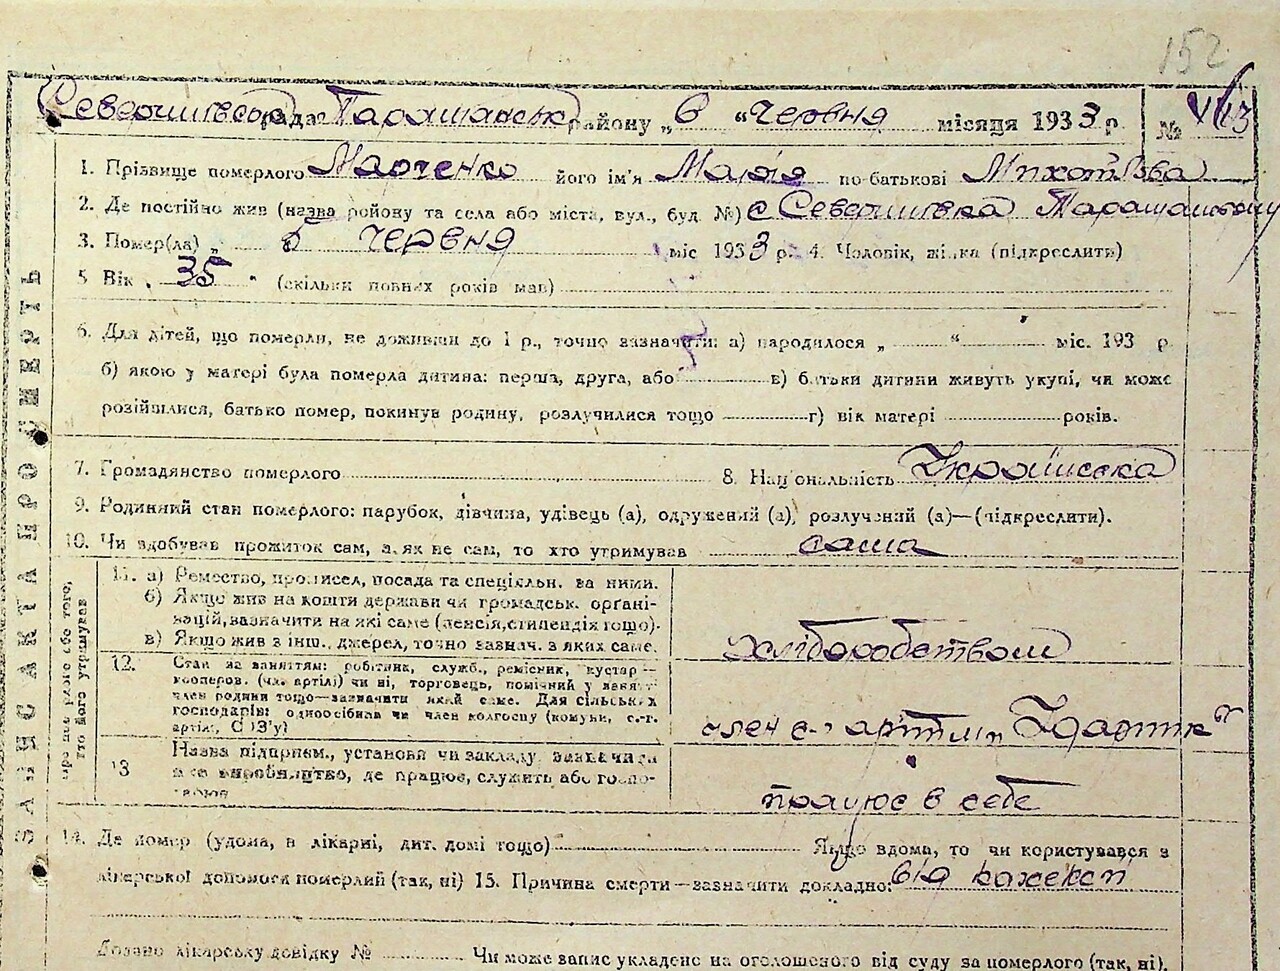 152
Северинівська рада Таращанськ району „ 6 “ червня місяця 1933 р. №
1. Прізвище померлого Марченко його ім'я Марія по-батькові
2. Де постійно жив (назва району та села або міста, вул., буд. №) с Северинівка
3. Помер(ла) „ 6 червня міс 1933 р. 4. Чоловік, жінка (підкреслити)
5 Вік . 35 (скільки повних років мав)
6. Для дітей, що померли, не доживши до 1 р., точно зазначити: а) народилося „ “ міс. 193 р.
б) якою у матері була померла дитина: перша, друга, або в) батьки дитини живуть укупі, чи може
розійшлися, батько помер, покинув родину, розлучилися тощо г) вік матері років.
7. Громадянство померлого 8. Національність Українська
9. Родинний стан померлого: парубок, дівчина, удівець (а), одружений (а), розлучений (а)—(підкреслити).
10. Чи здобував прожиток сам, а як не сам, то хто утримував сама
ЗАПИС АКТА ПРО СМЕРТЬ
про що руч его утримував
11. а) Ремество, промисел, посада та спеціяльн. за ними.
б) Якщо жив на кошти держави чи громадськ. органі-
зацій, зазначити на які саме (пенсія, стипендія тощо).
в) Якщо жив з інш. джерел, точно зазнач. з яких саме.
хліборобством
12. Стан за заняттям: робітник, служб., ремісник, кустар—
кооперов. (чл. артілі) чи ні, торговець, помічний у занятті
член родини тощо—зазначити який саме. Для сільських
господарів: одноосібник чи член колгоспу (комуни, с.-г.
артілі, СОЗ'у)
член с-г артіли
13 Назва підприєм., установи чи закладу, зазначити
виробництво, де працює, служить або госпо-
працює в себе
14. Де помер (удома, в лікарні, дит. домі тощо) Якщо вдома, то чи користувався з
лікарської допомоги померлий (так, ні) 15. Причина смерти—зазначити докладно: від
Додано лікарську довідку № Чи може запис укладено на оголошеного від суду за померлого (так, ні).